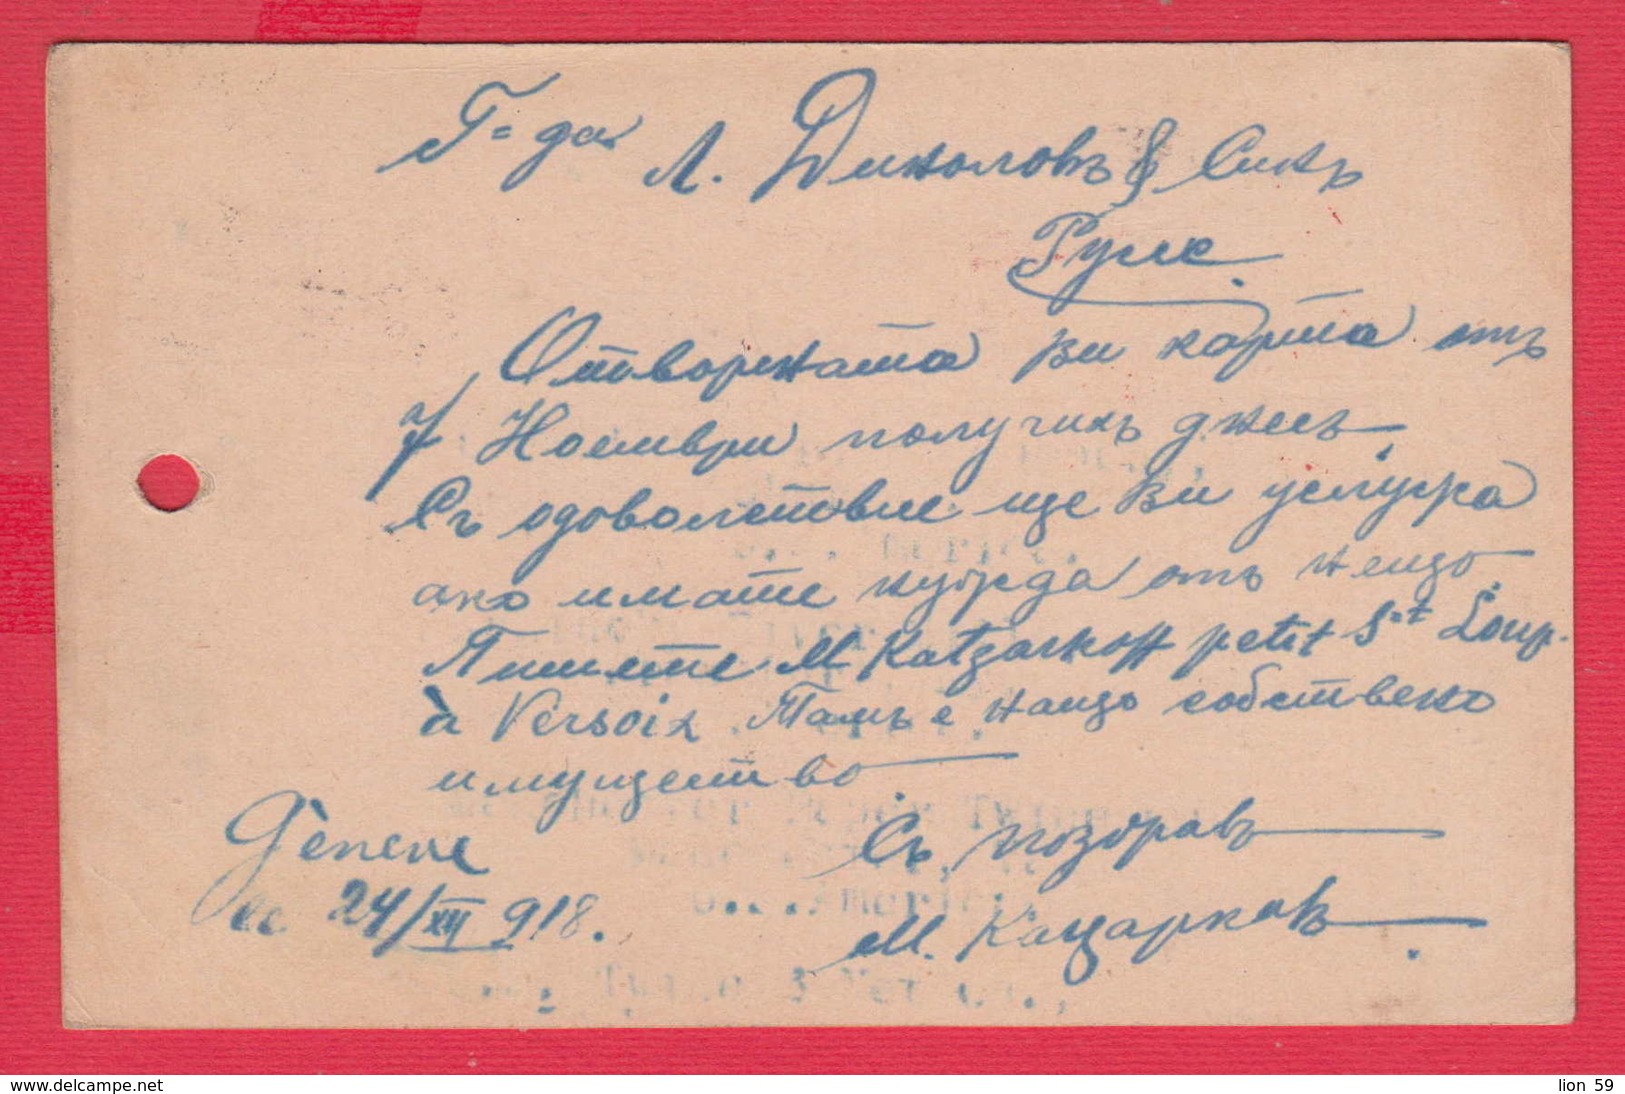 Г-да Л. Диколовъ & Сикъ
Русе
Отворената Ви карта отъ
7 Ноември получихъ днесъ
Съ удоволствие ще Ви услужа
ако имате нужда отъ нещо.
Пишете M Katzarkoff petit St Loup.
à Versoix. Тамъ е наще собствено
имущество
Genève
le 24/XII 918.
Съ поздравъ
М. Кацарковъ
lion 59
www.delcampe.net